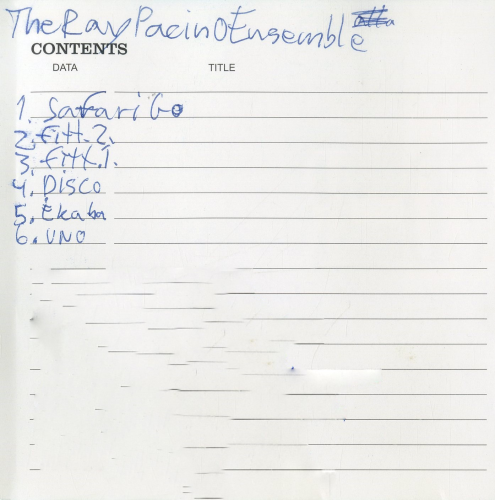 The Ray Pacino Ensemble
CONTENTS
DATA TITLE
1. Safari Go
2. Fitt. 2.
3. Fitt. 1.
4. Disco
5. Ekaba
6. UNO